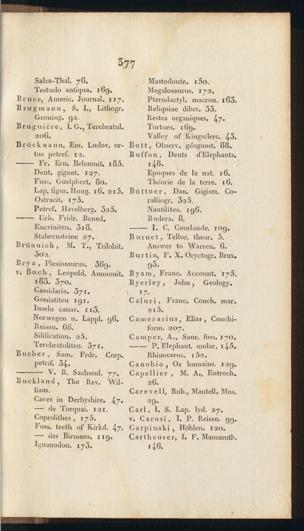 377
Salza-Thal. 76.
Testudo antiqua. 169.
Bruce, Americ. Journal. 117.
Brugmann, S. I., Lithogr.
Groning. 92.
Bruguière, I. G., Terebratul.
206.
Brückmann, Em. Ludov. or-
tus petref. 12.
—— Fr. Ern. Belemnit. 185.
Deut. gigant. 127.
Foss. Guelpbert. 80.
Lap. figur. Hung. 16. 215.
Ostracit. 175.
Petref. Havelberg. 325.
—— Urb. Fridr. Bened,
Encriniten. 318.
Stahrensteine 27.
Brünnich, M. T., Trilobit.
302.
Brya, Plesiosaurus. 369.
v. Buch, Leopold, Ammonit.
183. 370.
Cassidaria. 371.
Goniatiten 191.
Inseln canar. 113.
Norwegen u. Lappl. 96.
Reisen. 66.
Silification. 25.
Terebratuliten. 371.
Bucher, Sam. Frdr. Corp.
petrif. 34.
—— V. B. Sachsenl. 77.
Buckland, The Rev. Wil-
liam.
Caves in Derbyshire. 47.
— de Torquai. 121.
Coprolithes, 173.
Foss. teeth of Kirkd. 47.
— des Birmans. 119.
Iguanodon. 173.
Mastodonte. 150.
Megalosaurus. 172.
Pterodactyl. macron. 163.
Reliquiae diluv. 33.
Restes organiques. 47.
Tortues. 169.
Valley of Kingsclerc. 43.
Butt, Observ. géognost. 88.
Buffon, Dents d'Elephants.
148.
Epoques de la nat. 16.
Théorie de la terre. 16.
Büttner, Dan. Gigism. Co-
ralliogr. 325.
Nautilites. 196.
Rudera. 8.
—— I. C, Courlande. 109.
Burnet, Tellur. theor. 5.
Answer to Warren. 6.
Burtin, F. X. Oryctogr. Brux.
93.
Byam, Franc. Account. 175.
Byerley, John, Geology.
17.
Caluri, Franc. Conch. mar.
215.
Camerarius, Elias, Conchi-
form. 207.
Camper, A., Saur. foss. 170.
—— P. Elephant. molar. 145.
Rhinoceros, 152.
Canobio, Os humains. 129.
Capellier, M. A., Entroch.
26.
Carevell, Rob., Mantell. Mus.
29.
Carl, I. S. Lap. lyd. 27.
v. Carosi, I. P. Reisen. 99.
Carpinski, Höhlen. 120.
Cartheuser, I. F. Mammuth.
146.